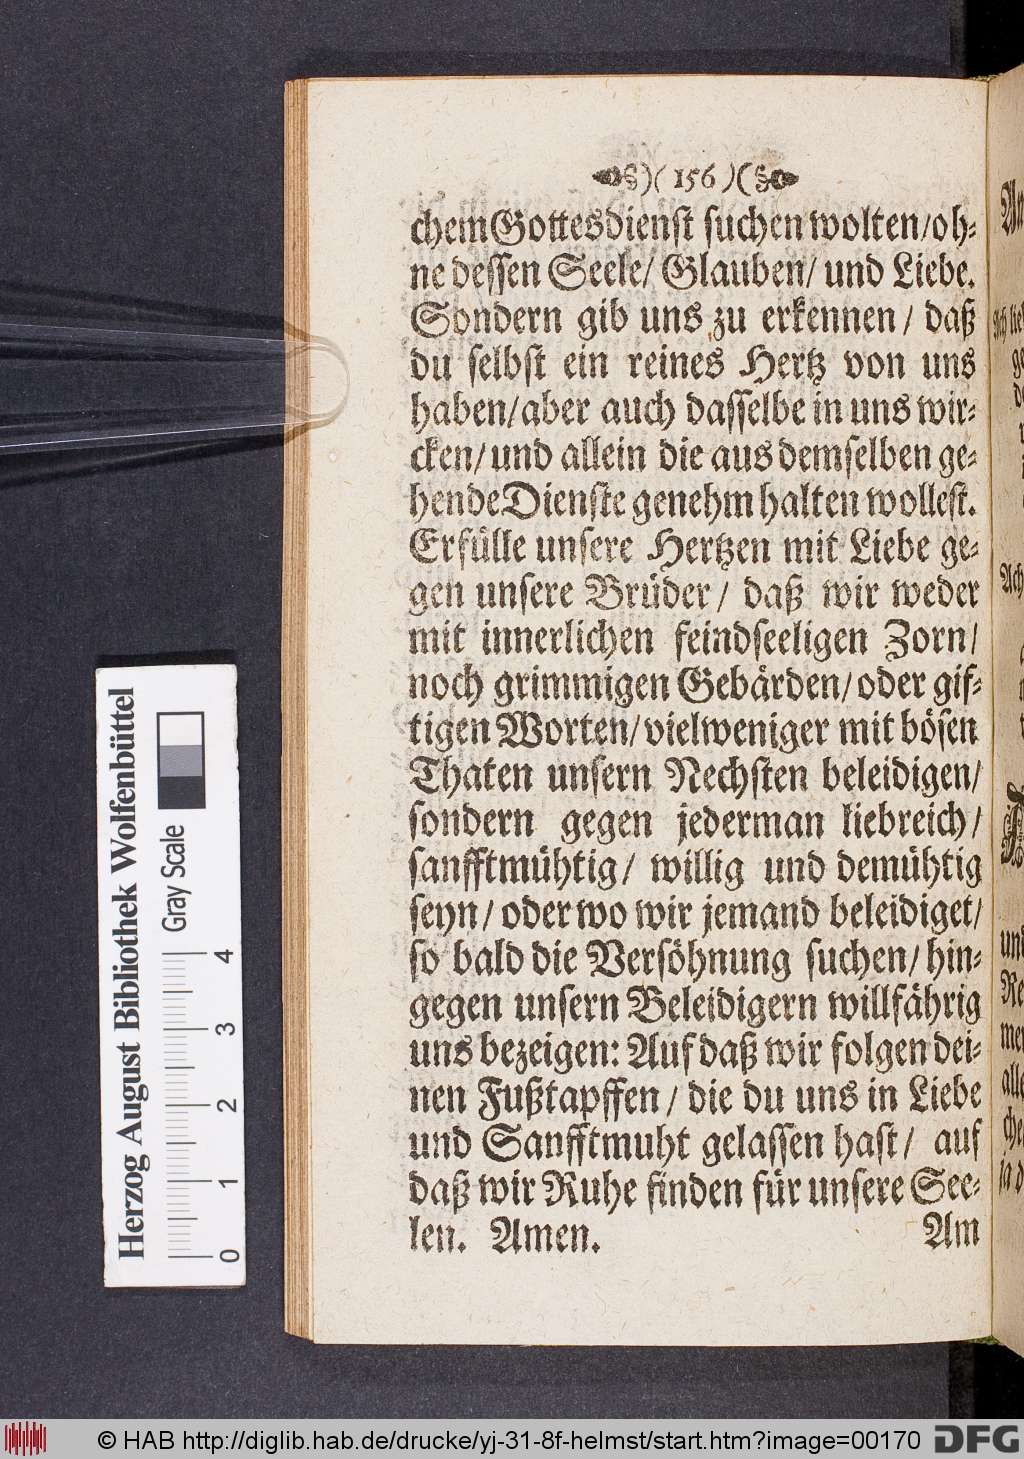 §)( 156 )(§
chem Gottesdienst suchen wolten/oh-
ne dessen Seele/ Glauben/ und Liebe.
Sondern gib uns zu erkennen/ daß
du selbst ein reines Hertz von uns
haben/aber auch dasselbe in uns wir-
cken/und allein die aus demselben ge-
hende Dienste genehm halten wollest.
Erfülle unsere Hertzen mit Liebe ge-
gen unsere Brüder/ daß wir weder
mit innerlichen feindseeligen Zorn/
noch grimmigen Gebärden/oder gif-
tigen Worten/vielweniger mit bösen
Thaten unsern Nechsten beleidigen/
sondern gegen jederman liebreich/
sanfftmühtig/ willig und demühtig
seyn/ oder wo wir jemand beleidiget/
so bald die Versöhnung suchen/ hin-
gegen unsern Beleidigern willfährig
uns bezeigen: Auf daß wir folgen dei-
nen Fußtapffen/ die du uns in Liebe
und Sanfftmuht gelassen hast/ auf
daß wir Ruhe finden für unsere See-
len. Amen.
Am
Herzog August Bibliothek Wolfenbüttel
Gray Scale
0 1 2 3 4
© HAB http://diglib.hab.de/drucke/yj-31-8f-helmst/start.htm?image=00170
DFG